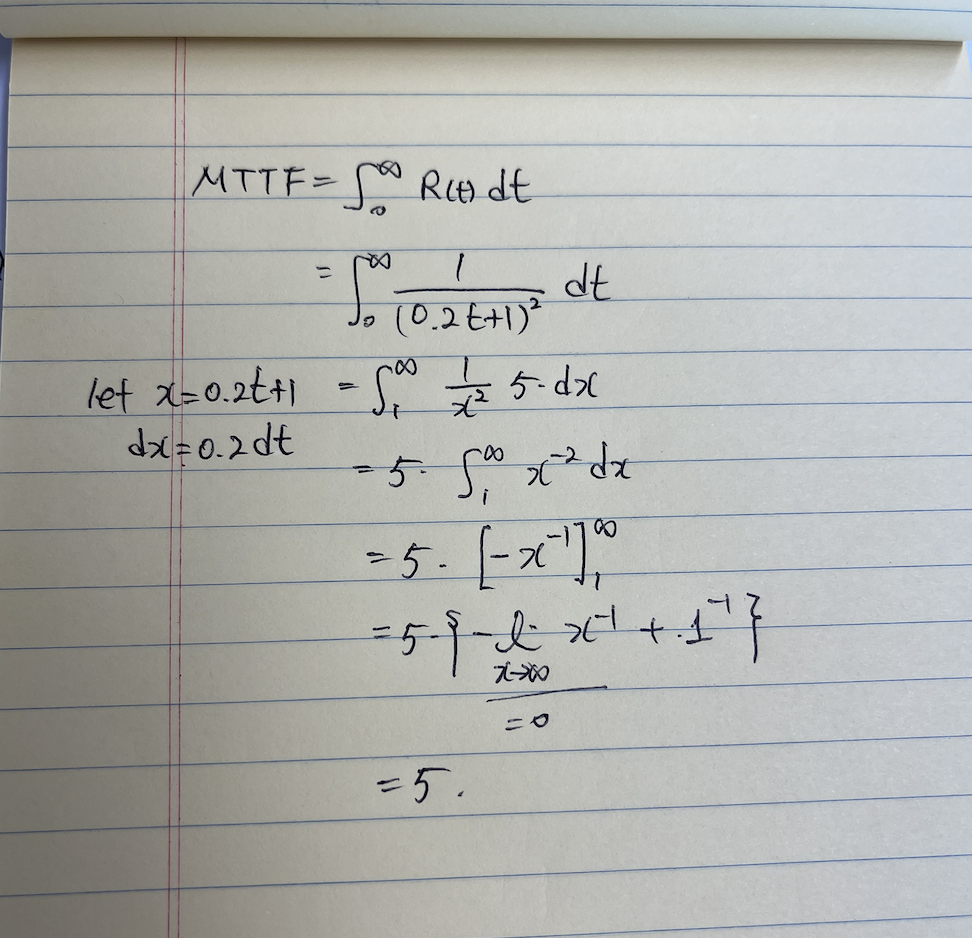 MTTF = ∫₀^∞ R(t) dt
= ∫₀^∞ 1/(0.2t+1)² dt
let x=0.2t+1 = ∫₁^∞ 1/x² 5·dx
dx=0.2dt
= 5· ∫₁^∞ x⁻² dx
= 5· [-x⁻¹]₁^∞
= 5·{-l· x→∞ x⁻¹ + 1⁻¹}
= 0
= 5.